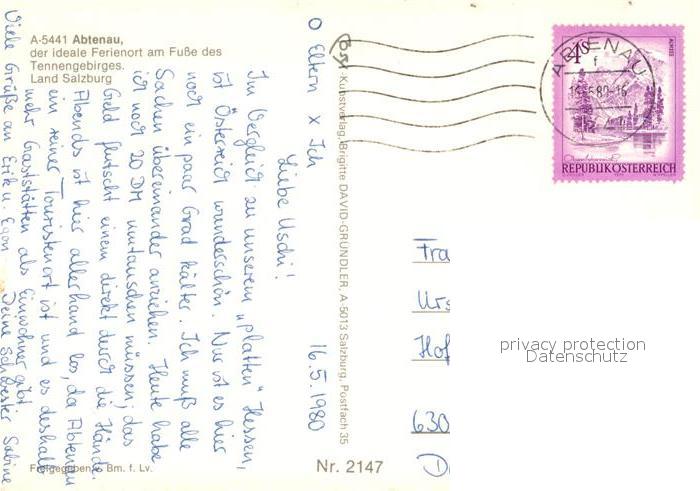 A-5441 Abtenau,
der ideale Ferienort am Fuße des
Tennengebirges.
Land Salzburg
O Eltern x Ich
16.5.1980
Liebe Uschi!
Im Vergleich zu unserem "platten" Hessen,
ist Österreich wunderschön. Nur ist es hier
noch ein paar Grad kälter. Ich muß alle
Sachen übereinander anziehen. Heute habe
ich noch 20 DM umtauschen müssen; das
Geld flutscht einem direkt durch die Hände.
Abends ist hier allerhand los, da Abtenau
ein reiner Touristenort ist und es deshalb
mehr Gaststätten als Einwohner gibt.
Viele Grüße an Erik u. Egon Deine Schwester Sabine
Freigegeben Bm. f. Lv.
Nr. 2147
Kunstverlag, Brigitte DAVID-GRUNDLER, A 5013 Salzburg, Postfach 35
4 S
ALMSEE
REPUBLIK ÖSTERREICH
ABTENAU
f
Fra
Urs
Hof
630
D
privacy protection
Datenschutz